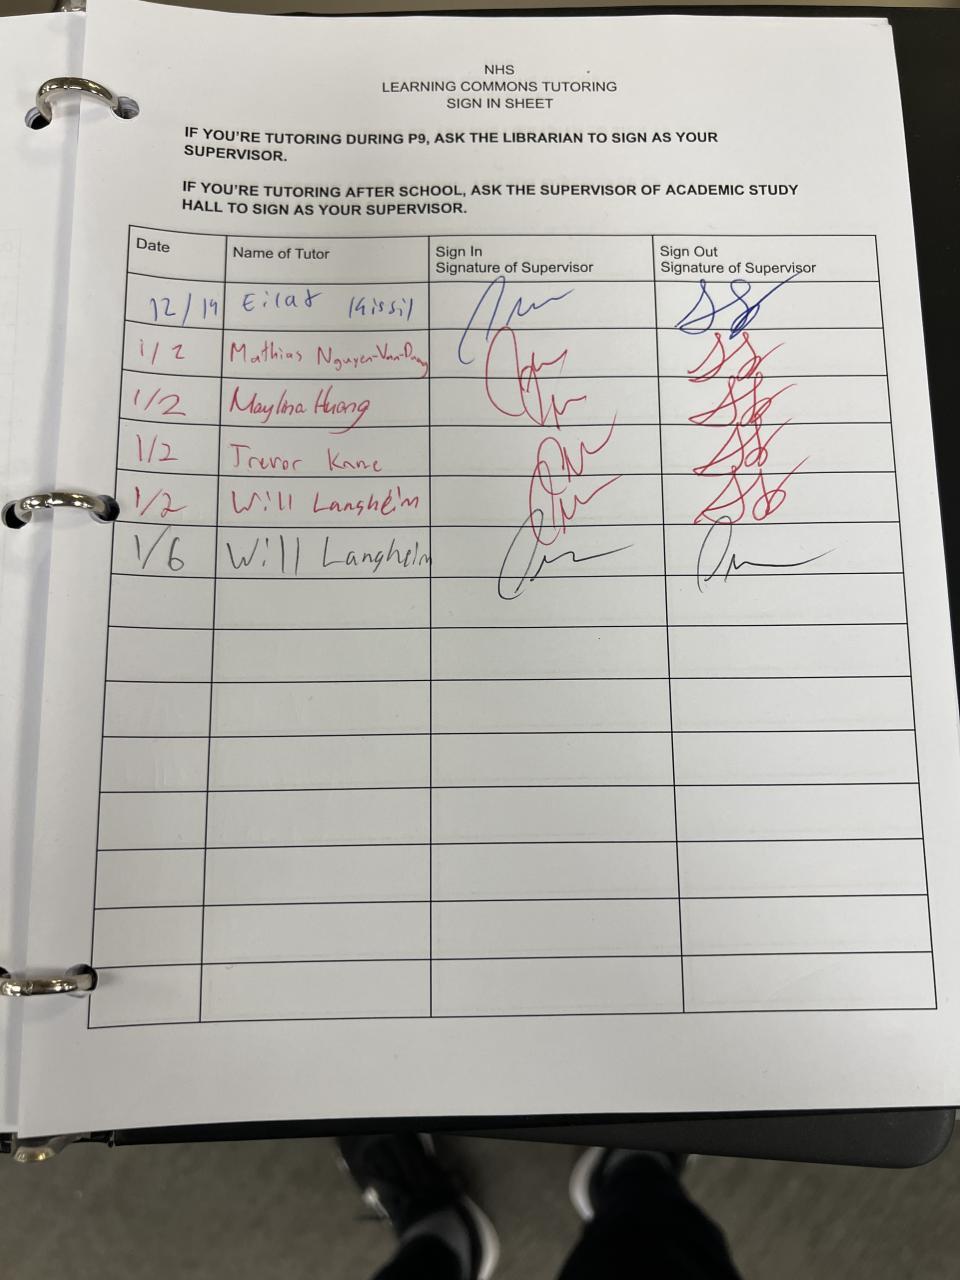 NHS
LEARNING COMMONS TUTORING
SIGN IN SHEET
IF YOU'RE TUTORING DURING P9, ASK THE LIBRARIAN TO SIGN AS YOUR
SUPERVISOR.
IF YOU'RE TUTORING AFTER SCHOOL, ASK THE SUPERVISOR OF ACADEMIC STUDY
HALL TO SIGN AS YOUR SUPERVISOR.
Date Name of Tutor Sign In Signature of Supervisor Sign Out Signature of Supervisor
12/19 Eilat Kissil
1/2 Mathias
1/2 Huang
1/2 Trevor Kane
1/2 Will Langheim
1/6 Will Langheim